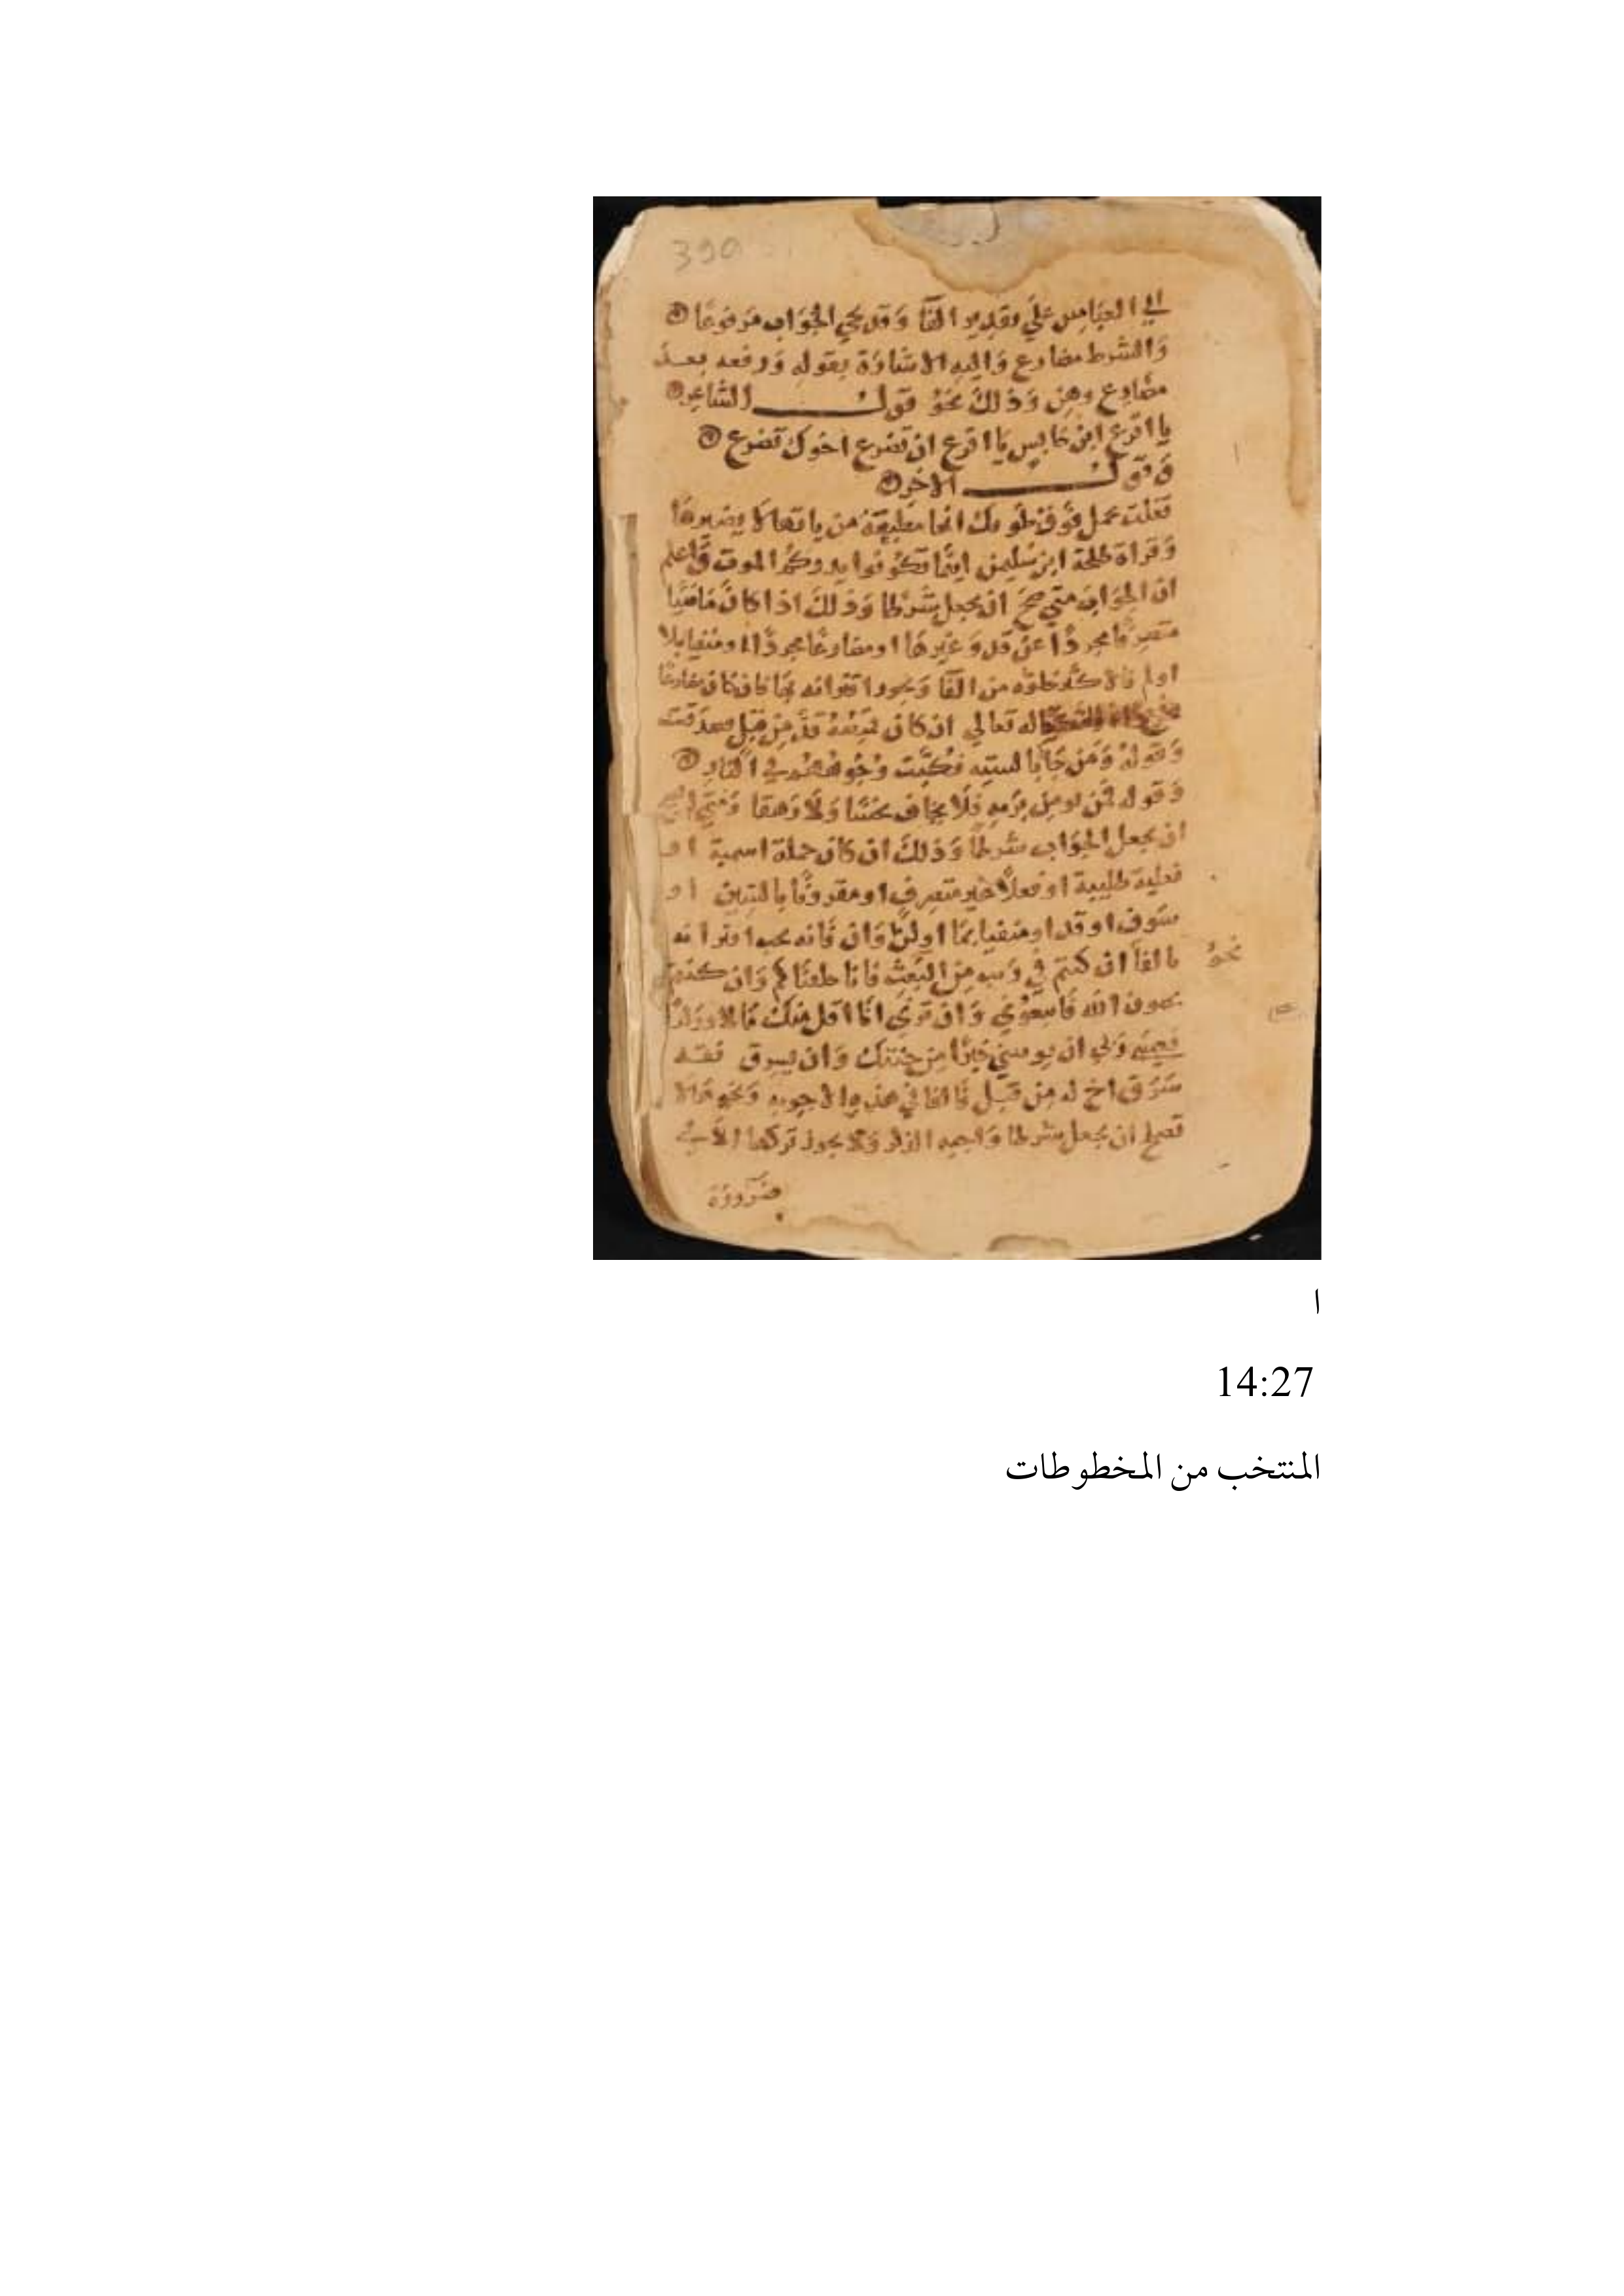 390
ابي العباس علي تقدير الفا وقد يجي الجواب مرفوعا
والشرط مضارع واليه الاشارة بقوله ورفعه بعد
مضارع وهن وذلك نحو قول الشاعر
يا اقرع ابن حابس يا اقرع ان تصرع اخوك تصرع
وقول الاخر
فقلت تحمل فوق طوقك انها مطبعة من ياتها لا يضيرها
وقراة طلحة ابن سليمن اينما تكونوا يدرككم الموت واعلم
ان الجواب متي صح ان يجعل شرطا وذلك اذا كان ماضيا
متصرفا مجردا عن قد وغيرها او مضارعا مجردا او منفيا بلا
اولم فالاكثر خلوه من الفا ويجوز اقترانه بها فان كان مضارعا
تعالي ان كان قميصه قد من قبل فصدقت
وقوله ومن جا بالسيه فكبت وجوههم في النار
وقوله فمن يومن بربه فلا يخاف بخسا ولا رهقا ومتي
ان يجعل الجواب شرطا وذلك ان كان جملة اسمية او
فعلية طلبية او فعلا غير متصرف او مقرونا بالسين او
سوف او قد او منفيا بما او لن وان فانه يجب اقترانه
بالفا ان كنتم في ريب من البعث فانا خلقناكم وان كنتم
نحو
تحبون الله فاتبعوني وان ترني انا اقل منك مالا وولدا
فعسي ربي ان يوتيني خيرا من جنتك وان يسرق فقد
سرق اخ له من قبل فالفا في هذه الاجوبه ونحوها لا
تصلح ان يجعل شرطا واجبه الذكر ولا يجوز تركها الا في
ضرورة
ا
14:27
المنتخب من المخطوطات